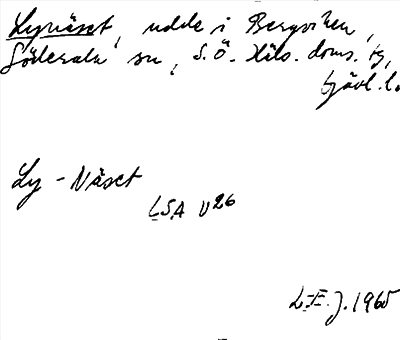 Lynäset, udde i Bergviken,
Söderala sn, S.Ö. Häls. doms. tg,
Gävl. l.
Ly - Näset
LSA U26
L.E.J. 1965